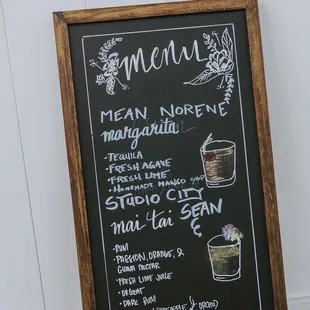 menu
MEAN NORENE
margarita
• TEQUILA
• FRESH AGAVE
• FRESH LIME
• HOMEMADE MANGO
STUDIO CITY
mai tai SEAN
&
• RUM
• PASSION, ORANGE, &
GUAVA NECTAR
• FRESH LIME JUICE
• ORGEAT
• DARK RUM